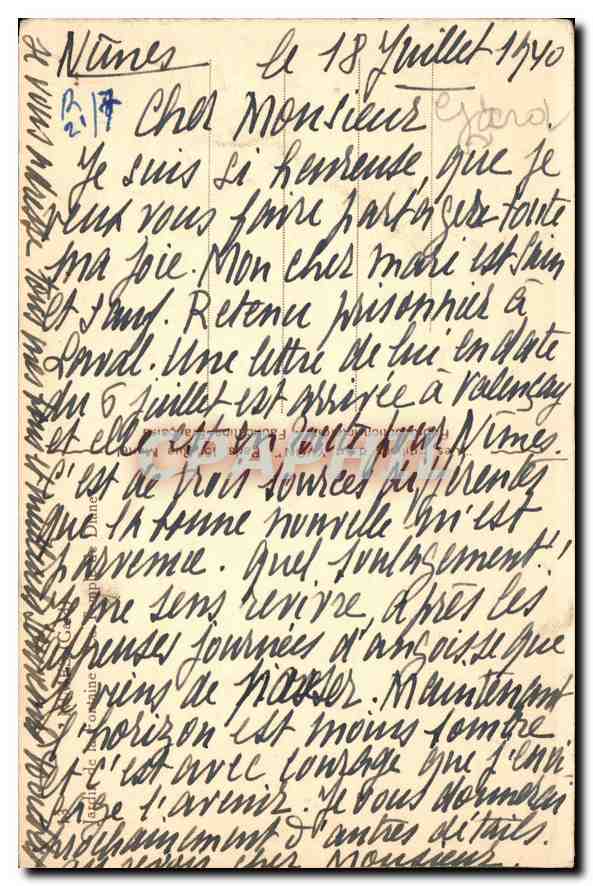 Nîmes le 18 Juillet 1940
R
21/7
Cher Monsieur
Je suis si heureuse, que je
veux vous faire partager toute
ma joie. Mon cher mari est sain
et sauf. Retenu prisonnier à
Laval. Une lettre de lui en date
du 6 juillet est arrivée à Valençay
et elle Nîmes.
C'est de trois sources différentes
que la bonne nouvelle m'est
parvenue. Quel soulagement!
Je me sens revivre, après les
affreuses journées d'angoisse que
je viens de passer. Maintenant
l'horizon est moins sombre
et c'est avec courage que j'envi
sage l'avenir. Je vous donnerai
prochainement d'autres détails.
Au revoir cher Monsieur.
Je vous
Jardin de la Fontaine Temple de Diane
(Gard)
CPAPHIL